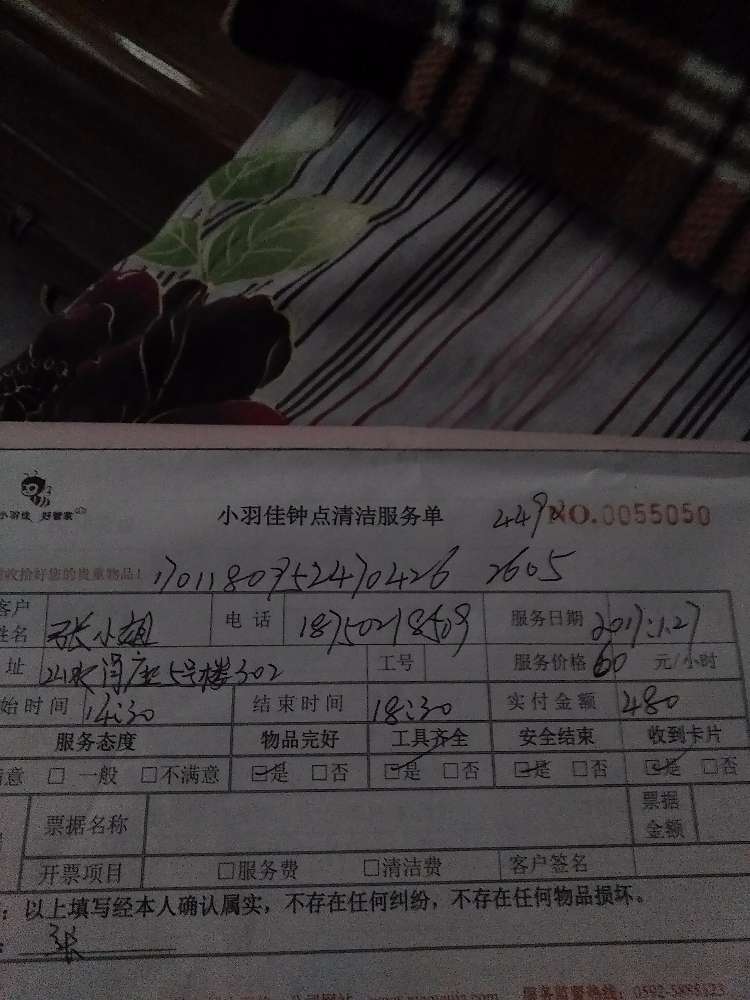 小羽佳 好管家
小羽佳钟点清洁服务单 449 NO.0055050
收拾好您的贵重物品! 17011809752470426 2605
客户姓名 张小姐 电 话 18750218509 服务日期 2017.1.27
址 5号楼302 工号 服务价格 60 元/小时
始时间 14:30 结束时间 18:30 实付金额 480
服务态度 物品完好 工具齐全 安全结束 收到卡片
意 □ 一般 □不满意 ☑是 □否 ☑是 □否 ☑是 □否 ☑是 □否
票据名称 票据金额
开票项目 □服务费 □清洁费 客户签名
:以上填写经本人确认属实,不存在任何纠纷,不存在任何物品损坏。
: 张
服务监督热线:0592-5855123